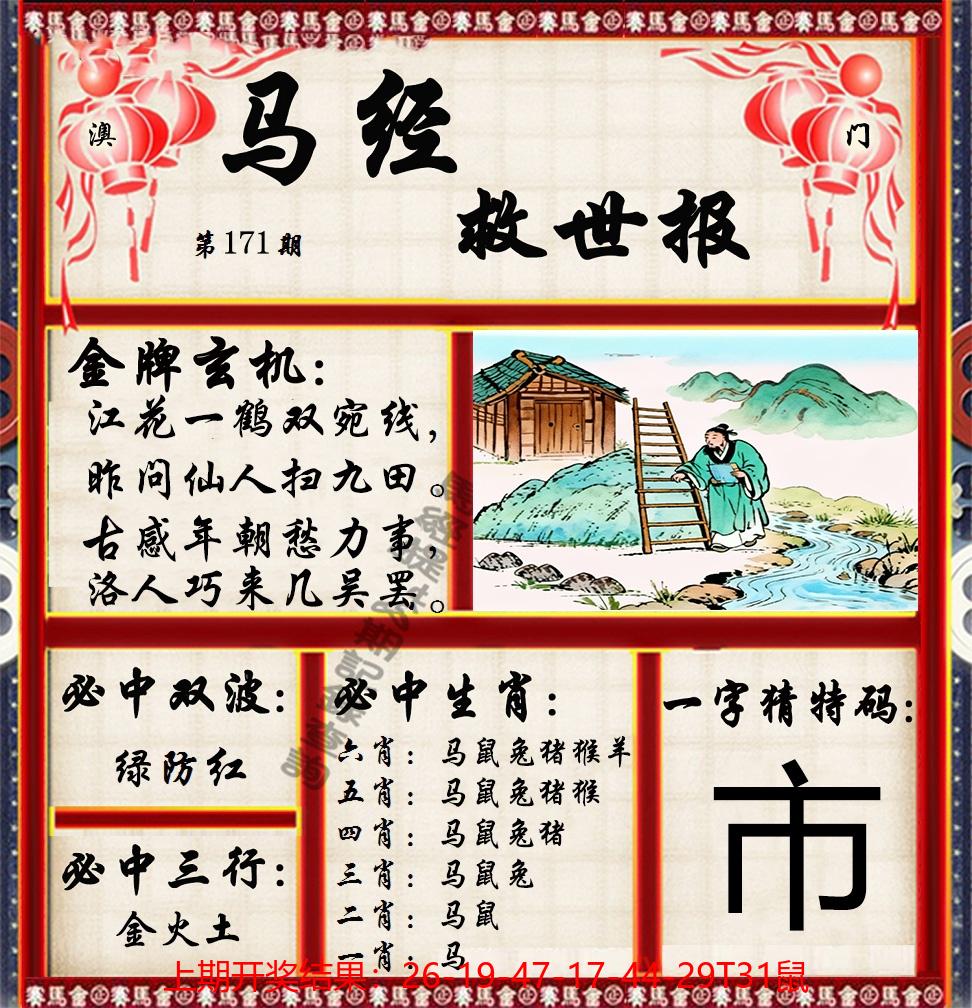 澳
门
马经
救世报
第171期
金牌玄机：
江花一鹤双宛线，
昨问仙人扫九田。
古感年朝愁力事，
洛人巧来几吴罢。
必中双波：
绿防红
必中三行：
金火土
必中生肖：
六肖：马鼠兔猪猴羊
五肖：马鼠兔猪猴
四肖：马鼠兔猪
三肖：马鼠兔
二肖：马鼠
一肖：马
一字猜特码：
市
上期开奖结果：26-19-47-17-44-29T31鼠